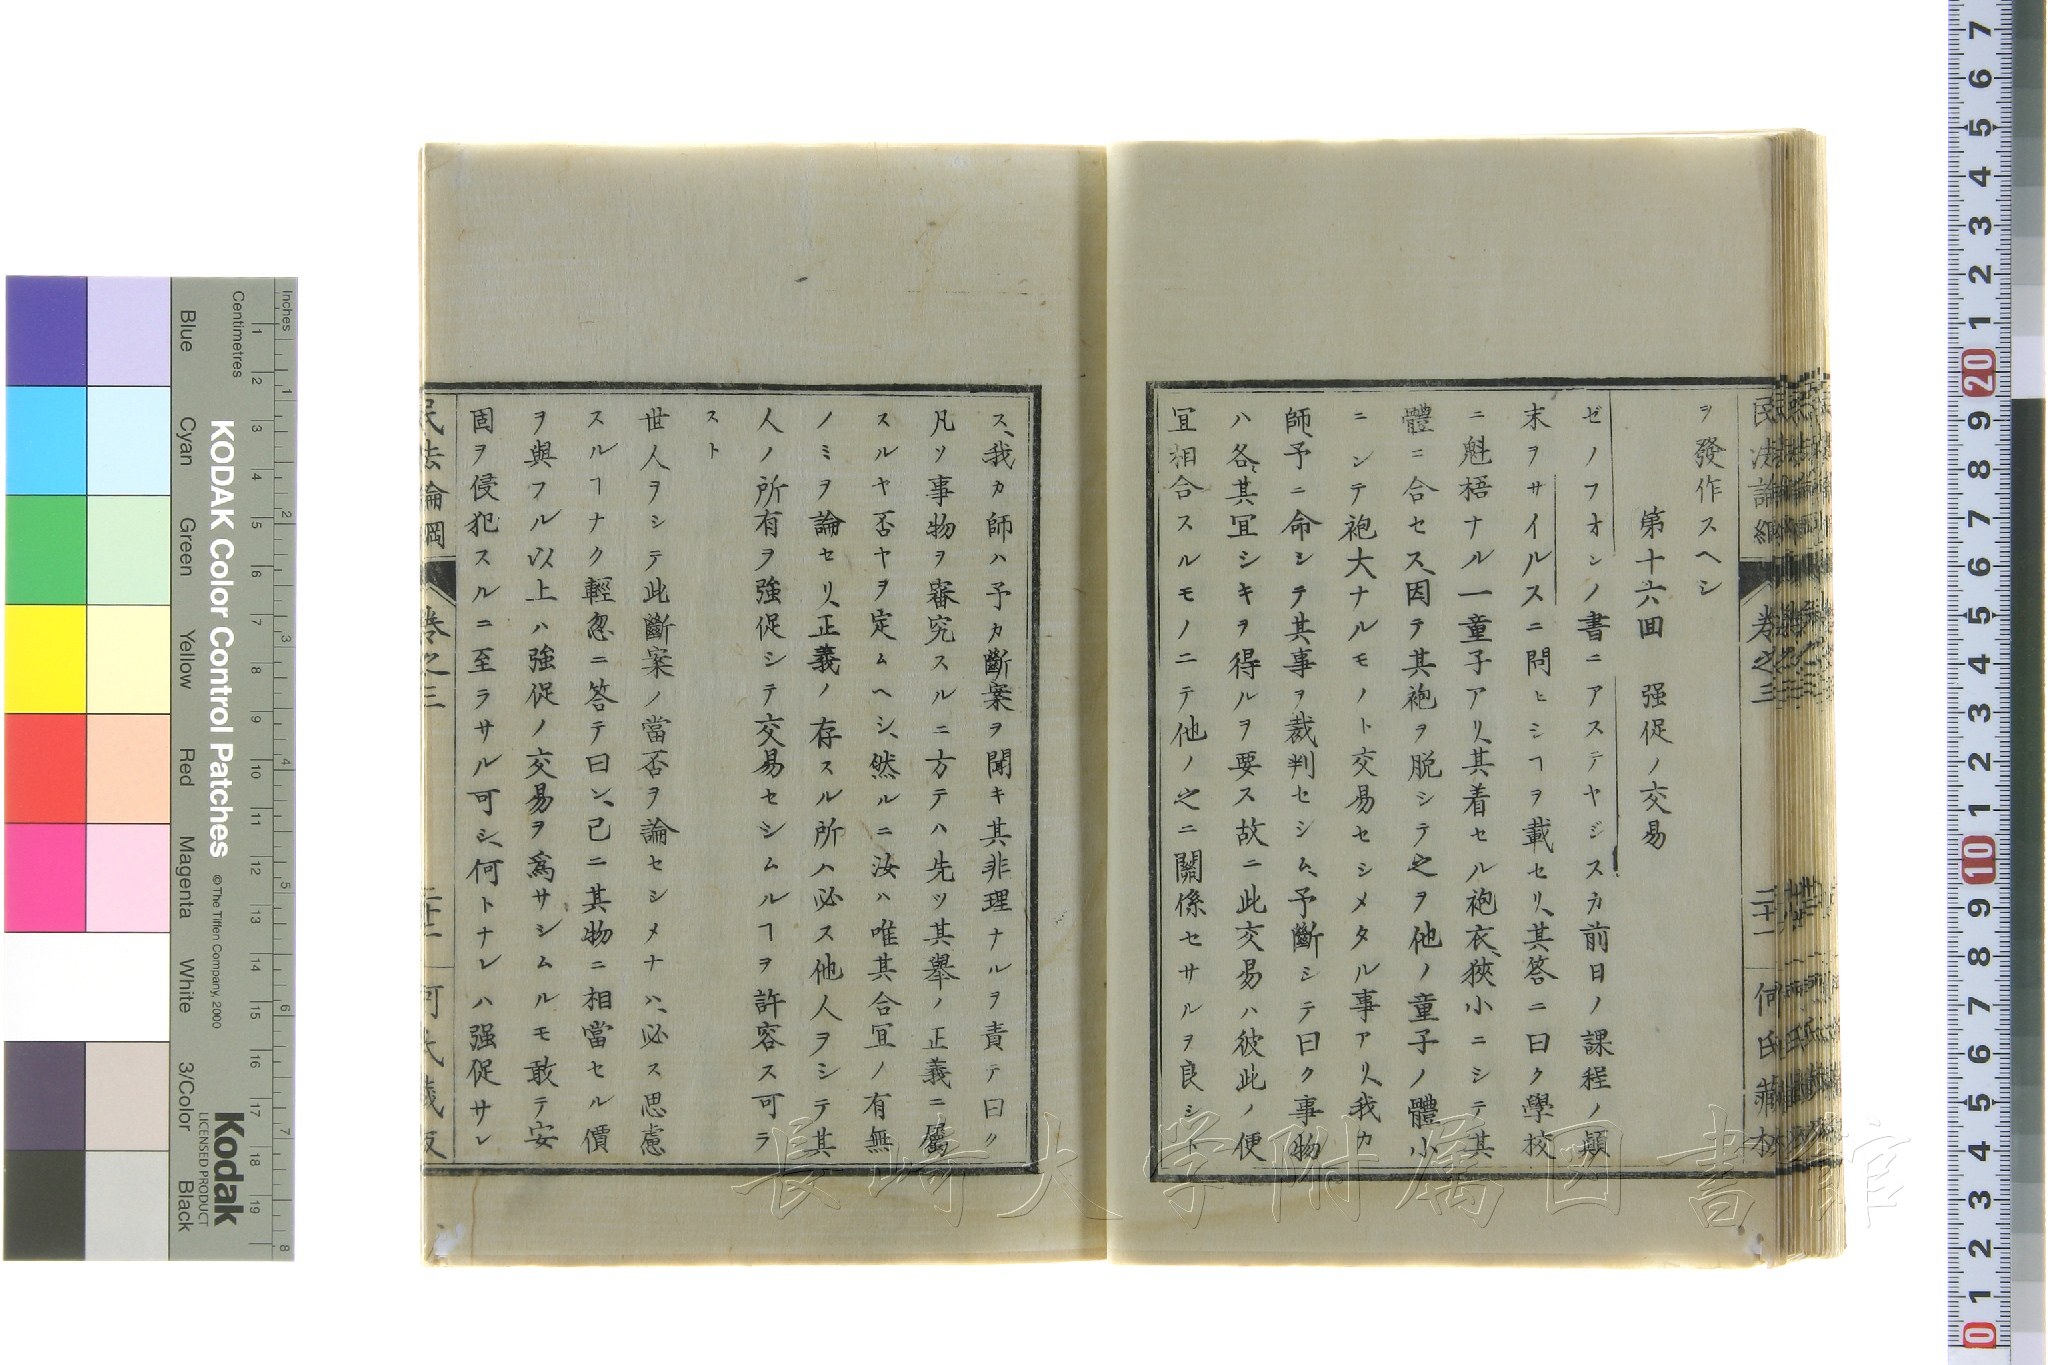 ヲ發作スヘシ
第十六回　强促ノ交易
ゼノフオンノ書ニアステヤジスカ前日ノ課程ノ顚
末ヲサイルスニ問ヒシヿヲ載セリ、其答ニ曰ク學校
ニ魁梧ナル一童子アリ、其着セル袍衣狹小ニシテ其
體ニ合セス、因テ其袍ヲ脫シテ之ヲ他ノ童子ノ體小
ニシテ袍大ナルモノト交易セシメタル事アリ、我カ
師、予ニ命シテ其事ヲ裁判セシム、予斷シテ曰ク事物
ハ各、其宜シキヲ得ルヲ要ス故ニ此交易ハ彼此ノ便
宜相合スルモノニテ他ノ之ニ關係セサルヲ良シト
ス、我カ師ハ予カ斷案ヲ聞キ其非理ナルヲ責テ曰ク
凡ソ事物ヲ審究スルニ方テハ先ツ其擧ノ正義ニ屬
スルヤ否ヤヲ定ムヘシ、然ルニ汝ハ唯其合宜ノ有無
ノミヲ論セリ、正義ノ存スル所ハ必ス他人ヲシテ其
人ノ所有ヲ强促シテ交易セシムルヿヲ許容ス可ラ
スト
世人ヲシテ此斷案ノ當否ヲ論セシメナハ、必ス思慮
スルヿナク輕忽ニ答テ曰ン、已ニ其物ニ相當セル價
ヲ與フル以上ハ强促ノ交易ヲ爲サシムルモ敢テ安
固ヲ侵犯スルニ至ラサル可シ、何トナレハ强促サレ
民法論綱　卷之三　二十一　何氏藏板
長崎大学附属図書館
KODAK Color Control Patches
© The Tiffen Company, 2000
Kodak
LICENSED PRODUCT
Inches
Centimetres
Blue
Cyan
Green
Yellow
Red
Magenta
White
3/Color
Black